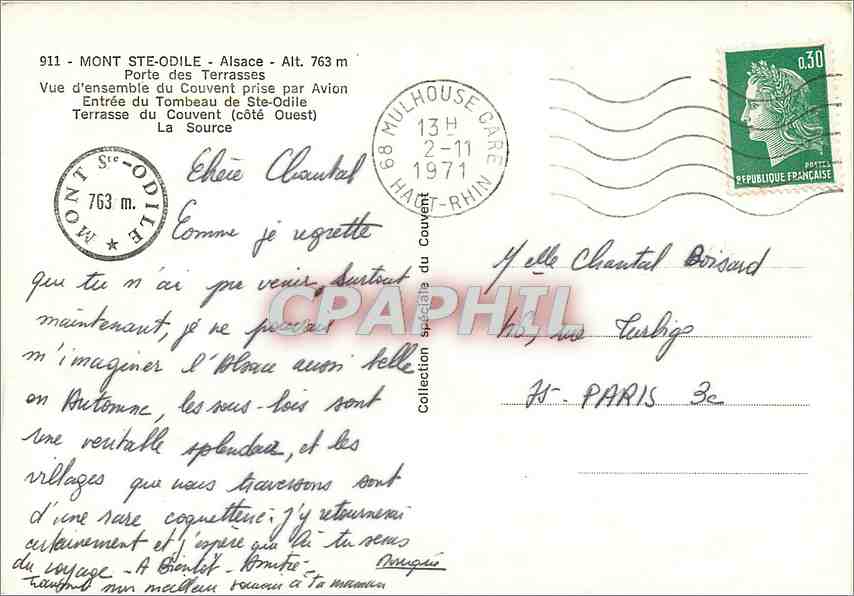 911 - MONT STE-ODILE - Alsace - Alt. 763 m
Porte des Terrasses
Vue d'ensemble du Couvent prise par Avion
Entrée du Tombeau de Ste-Odile
Terrasse du Couvent (côté Ouest)
La Source
MONT Ste-ODILE
763 m.
68 MULHOUSE GARE
13H
2-11
1971
HAUT-RHIN
0,30
POSTES
REPUBLIQUE FRANÇAISE
Chère Chantal
Comme je regrette
que tu n'ai pu venir, surtout
maintenant, je ne pouvais
m'imaginer l'Alsace aussi belle
en Automne, les sous-bois sont
une veritable splendeur, et les
villages que nous traversons sont
d'une rare coquetterie; j'y retournerai
certainement et j'espère que là tu seras
du voyage - A Bientôt - Amitié -
meilleur à ta maman
Collection spéciale du Couvent
CPAPHIL
Melle Chantal Boisard
48, rue Turbigo
75 - PARIS 3e